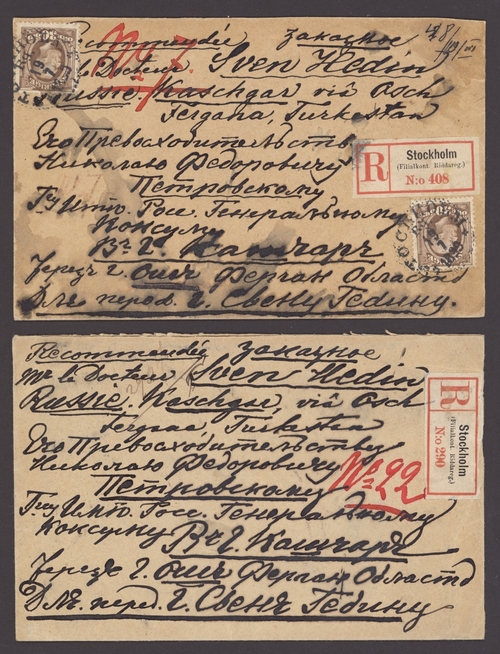 Recommandée заказное
№ 7.
Docteur Sven Hedin
Russie. Kaschgar viâ Osch
Fergana, Turkestan
Его Превосходительству
Николаю Федоровичу
Петровскому
Гну Импо. Росс. Генеральному
Консулу
Въ г. Кашгаръ
Черезъ г. Ошъ Ферган Областъ
Для перед. г. Свену Гедину.
R
Stockholm
(Filialkont. Riddareg.)
N:o 408
Recommandée заказное
Mr le Docteur Sven Hedin
Russie. Kaschgar, viâ Osch
Fergana, Turkestan
Его Превосходительству
Николаю Федоровичу
№ 22
Петровскому
Гну Импо. Росс. Генеральному
Консулу
Въ г. Кашгаръ
Черезъ г. Ошъ Ферган Областъ
Для перед. г. Свенъ Гедину
R
Stockholm
(Filialkont. Riddareg.)
N:o 290